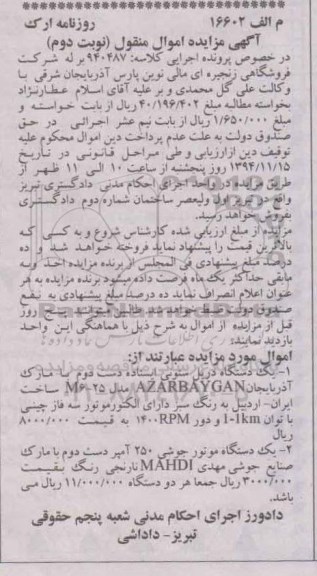 م الف ۱۶۶۰۲ روزنامه ارک
آگهی مزایده اموال منقول (نوبت دوم)
در خصوص پرونده اجرایی کلاسه: ۹۴۰۴۸۷ بر له شرکت
فروشگاهی زنجیره ای مالی نوین پارس آذربایجان شرقی با
وکالت علی گل محمدی و بر علیه آقای اسلام عطارنژاد
بخواسته مطالبه مبلغ ۴۰/۱۹۶/۴۰۲ ریال از بابت خواسته و
مبلغ ۱/۶۵۰/۰۰۰ ریال از بابت نیم عشر اجرائی در حق
صندوق دولت به علت عدم پرداخت دین اموال محکوم علیه
توقیف دین ازارزیابی و طی مراحل قانونی در تاریخ
۱۳۹۴/۱۱/۱۵ روز پنجشنبه از ساعت ۱۰ الی ۱۱ ظهر از
طریق مزایده در واحد اجرای احکام مدنی دادگستری تبریز
واقع در تبریز اول ولیعصر ساختمان شماره دوم دادگستری
بفروش خواهد رسید.
مزایده از مبلغ ارزیابی شده کارشناس شروع و به کسی که
بالاترین قیمت را پیشنهاد نماید فروخته خواهد شد و ده
درصد مبلغ پیشنهادی فی المجلس از برنده مزایده اخذ و به
مابقی حداکثر یک ماه فرصت داده میشود برنده مزایده به هر
عنوان اعلام انصراف نماید ده درصد مبلغ پیشنهادی به نفع
صندوق دولت ضبط خواهد شد طالبین میتوانند پنج روز
قبل از مزایده از اموال به شرح ذیل با هماهنگی این واحد
بازدید نمایند.
اموال مورد مزایده عبارتند از:
۱- یک دستگاه دریل ستونی ایستاده دست دوم با مارک
آذربایجان AZARBAYGAN مدل M6-25 ساخت
ایران- اردبیل به رنگ سبز دارای الکتروموتور سه فاز چینی
با توان 1-1km و دور ۱۴۰۰RPM به قیمت ۸۰۰۰/۰۰۰
ریال
۲- یک دستگاه موتور جوشی ۲۵۰ آمپر دست دوم با مارک
صنایع جوشی مهدی MAHDI نارنجی رنگ بقیمت
۳۰۰۰/۰۰۰ ریال جمعا هر دو دستگاه ۱۱/۰۰۰/۰۰۰ ریال می
باشد.
دادورز اجرای احکام مدنی شعبه پنجم حقوقی
تبریز- داداشی